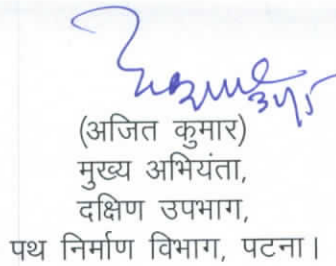 (अजित कुमार)
मुख्य अभियंता,
दक्षिण उपभाग,
पथ निर्माण विभाग, पटना।